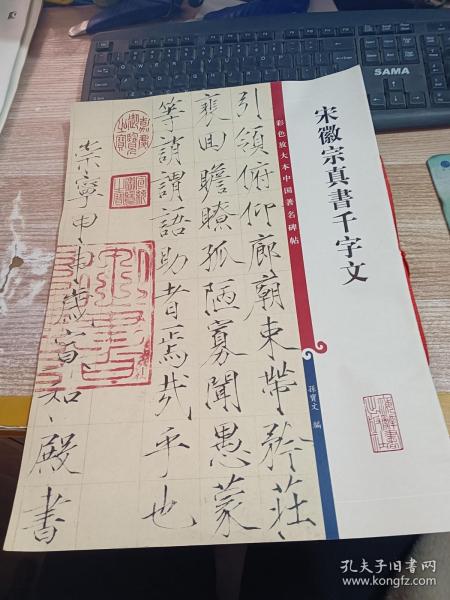 宋徽宗真書千字文
彩色放大本中国著名碑帖
孫寶文 編
引領俯仰廊廟束帶矜莊
裵回瞻眺孤陋寡聞愚蒙
等誚謂語助者焉哉乎也
崇寧甲申歲宣和殿書
嘉慶御覽之寶
SAMA
孔夫子旧书网
www.kongfz.com